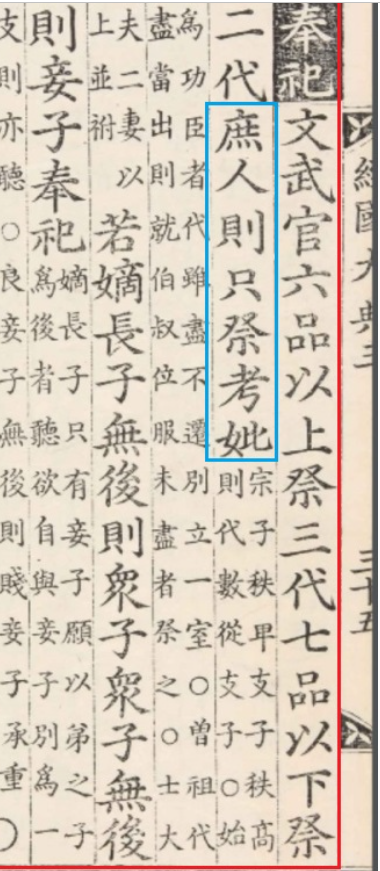 經國大典三 三十五
奉祀 文武官六品以上祭三代七品以下祭
二代庶人則只祭考妣
宗子秩卑支子秩高
則代數從支子○始
爲功臣者代雖盡不遷別立一室○曾祖代
盡當出則就伯叔位服未盡者祭之○士大
夫二妻以
上並祔
若嫡長子無後則衆子衆子無後
則妾子奉祀
嫡長子只有妾子願以弟之子
爲後者聽欲自與妾子別爲一
支則亦聽○良妾子無後則賤妾子承重○